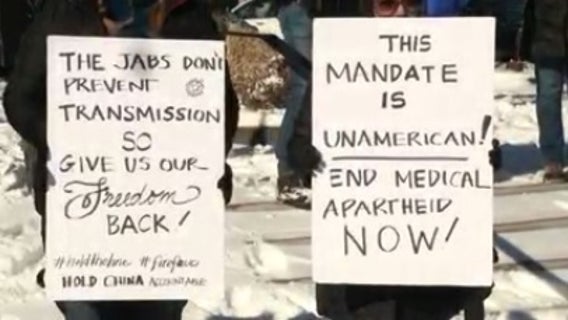 THE JABS DON'T
PREVENT
TRANSMISSION
SO
GIVE US OUR
Freedom
BACK!
#holdtheline
HOLD CHINA ACCOUNTABLE
THIS
MANDATE
IS
UNAMERICAN!
END MEDICAL
APARTHEID
NOW!